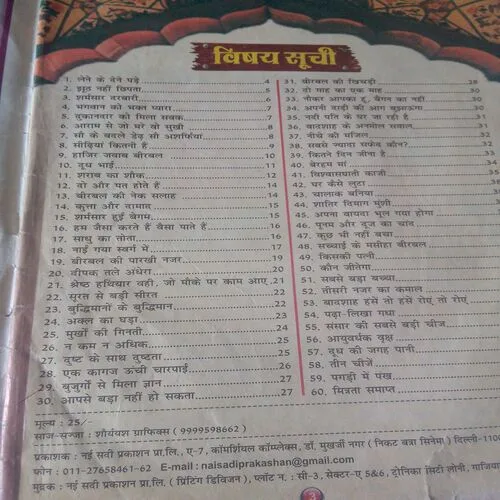 विषय सूची
1. लेने के देने पड़े 4
2. झूठ नहीं छिपता 5
3. शर्मसार दरबारी 6
4. भगवान को भक्त प्यारा 7
5. दुकानदार को मिला सबक 7
6. आराम से जो मरे वो सुखी 8
7. सौ के बदले डेढ़ सौ अशर्फियां 8
8. सीढ़ियां कितनी हैं 9
9. हाजिर जवाब बीरबल 10
10. दूध भाई 11
11. शराब का शौक 12
12. दो और पत होते हैं 14
13. बीरबल की नेक सलाह 14
14. कुत्ता और दामाद 15
15. शर्मसार हुई बेगम 15
16. हम जैसा करते हैं वैसा पाते हैं 16
17. साधु का तोता 16
18. नाई गया स्वर्ग में 17
19. बीरबल की पारखी नजर 19
20. दीपक तले अंधेरा 20
21. श्रेष्ठ हथियार वही, जो मौके पर काम आए 21
22. सूरत से बड़ी सीरत 22
23. बुद्धिमानों के बुद्धिमान 22
24. अक्ल का घड़ा 23
25. मूर्खों की गिनती 24
26. न कम न अधिक 25
27. दुष्ट के साथ दुष्टता 25
28. एक कागज ऊंची चारपाई 26
29. बुजुर्गों से मिला ज्ञान 27
30. आपसे बड़ा नहीं हो सकता 27
31. बीरबल की खिचड़ी 28
32. दो माह का एक माह 30
33. नौकर आपका हूं, बैंगन का नहीं 30
34. अपनी दाढ़ी की आग बुझाऊंगा 30
35. नदी पति के घर जा रही है 31
36. बादशाह के अनमोल सवाल 31
37. नीचे की मंजिल 32
38. सबसे ज्यादा सफेद कौन? 32
39. कितने दिन जीना है 33
40. बेरहम मां 34
41. विश्वासघाती काजी 35
42. घर कैसे लुटा
43. चालाक बनिया
44. शातिर दिमाग मुंशी
45. अपना वायदा भूल गया होगा
46. पूनम और दूज का चांद
47. कुछ भी नहीं बचा
48. सच्चाई के मसीहा बीरबल
49. किसकी पत्नी
50. कौन जीतेगा
51. सबसे बड़ा बच्चा
52. तीसरी नजर का कमाल
53. बादशाह हंसे तो हंसे रोएं तो रोएं
54. पढ़ा-लिखा गधा
55. संसार की सबसे बड़ी चीज
56. आयुवर्धक वृक्ष
57. दूध की जगह पानी
58. तीन चीजें
59. पगड़ी में पंख
60. मित्रता समाप्त
मूल्य : 25/-
साज-सज्जा : शौर्यवंश ग्राफिक्स ( 9999598662 )
प्रकाशक : नई सदी प्रकाशन प्रा.लि., ए-7, कॉमर्शियल कॉम्प्लेक्स, डॉ. मुखर्जी नगर ( निकट बत्रा सिनेमा ) दिल्ली-1100
फोन : 011-27658461-62 E-mail : naisadiprakashan@gmail.com
मुद्रक : नई सदी प्रकाशन प्रा.लि. ( प्रिंटिंग डिविजन ), प्लॉट नं. : सी-3, सेक्टर-ए 5&6, ट्रोनिका सिटी लोनी, गाजिया
3